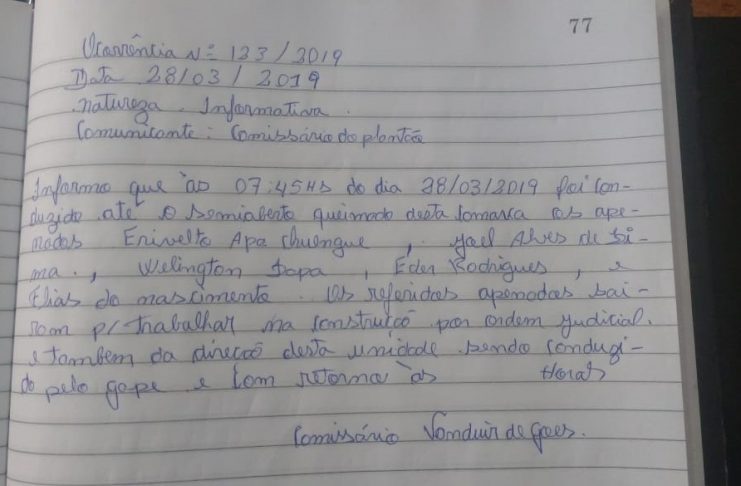 77
Ocorrência Nº 133/2019
Data 28/03/2019
natureza. Informativa.
Comunicante: Comissário do plantão
Informo que às 07:45Hs do dia 28/03/2019 foi con-
duzido até o semiaberto queimado desta comarca os ape-
nados Erivelto Apa Chuengue, Yael Alves de Li-
ma., Welington Sapa, Eder Rodrigues, e
Elias do nascimento. Os referidos apenados sai-
ram p/ trabalhar na construção por ordem judicial.
e também da direção desta unidade sendo conduzi-
do pelo gope e com retorno às Horas
Comissário Vonduir de Goes.